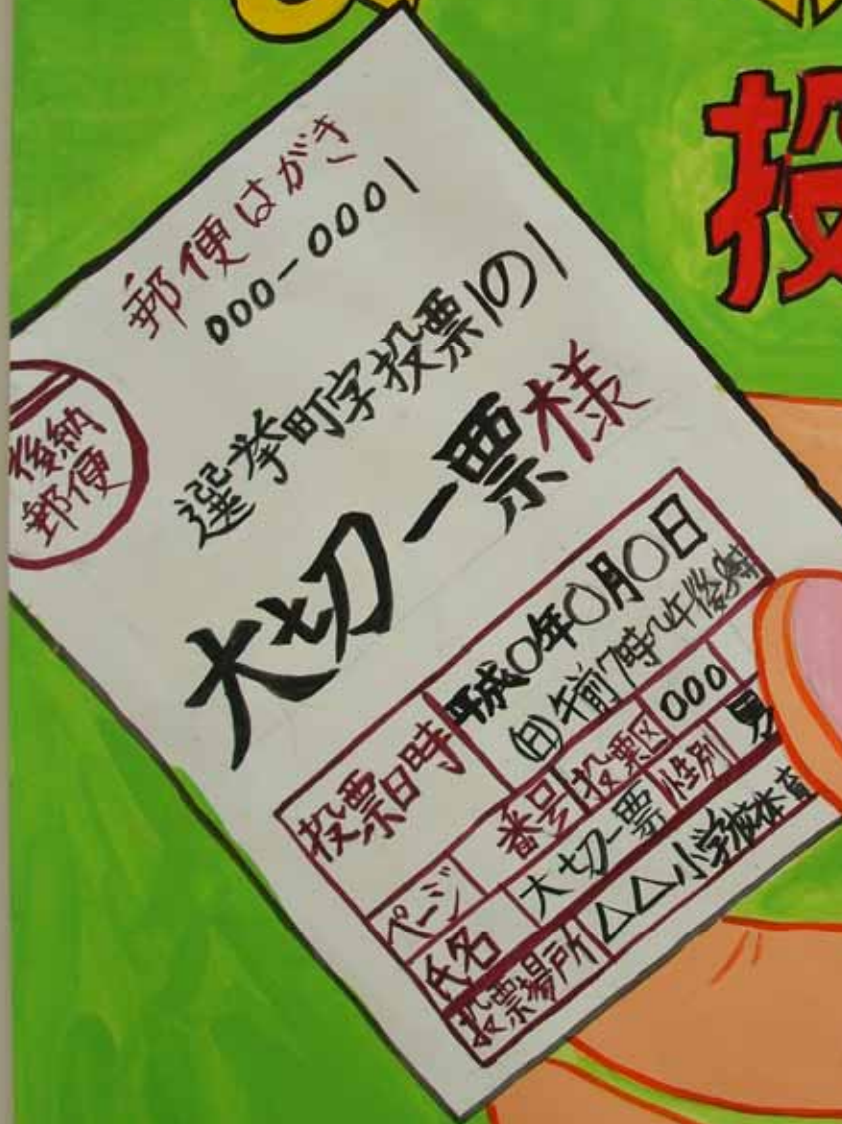 投
郵便はがき
000-0001
後納
郵便
選挙町字投票1の1
大切一票様
投票日時 平成〇年〇月〇日
(日)午前7時~午後8時
ページ 番号 投票区 000
氏名 大切一票 性別 男
投票場所 △△小学校体育